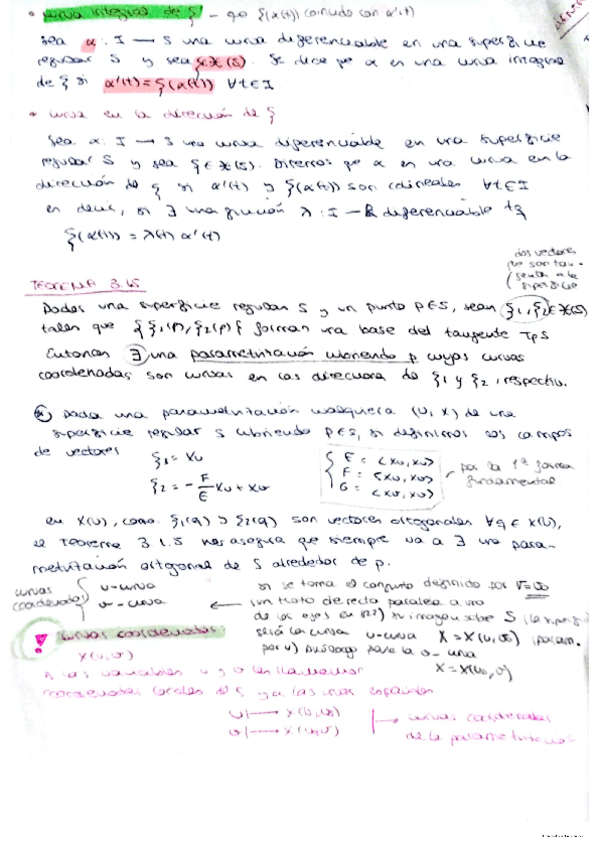 • curva integral de ξ - que ξ(α(t)) coincida con α'(t)
Sea α: I → S una curva diferenciable en una superficie
regular S y sea ξ∈𝔛(S). Se dice que α es una curva integral
de ξ si α'(t) = ξ(α(t)) ∀t∈I
• curva en la dirección de ξ
Sea α: I → S una curva diferenciable en una superficie
regular S y sea ξ∈𝔛(S). Diremos que α es una curva en la
dirección de ξ si α'(t) y ξ(α(t)) son colineales ∀t∈I
es decir, si ∃ una función λ: I → ℝ diferenciable tq
ξ(α(t)) = λ(t) α'(t)
dos vectores
que son tan-
gentes a la
superficie
TEOREMA 3.1.5
Dadas una superficie regular S y un punto p∈S, sean ξ₁, ξ₂∈𝔛(S)
tales que {ξ₁(p), ξ₂(p)} forman una base del tangente TpS
Entonces ∃ una parametrización cubriendo p cuyas curvas
coordenadas son curvas en las direcciones de ξ₁ y ξ₂, respectiv.
Dada una parametrización cualquiera (U, X) de una
superficie regular S cubriendo p∈S, si definimos los campos
de vectores
ξ₁ = Xu
ξ₂ = -F/E Xu + Xv
E = <Xu, Xu>
F = <Xu, Xv>
G = <Xv, Xv>
por la 1ª forma
fundamental
en X(U), como ξ₁(q) y ξ₂(q) son vectores ortogonales ∀q∈X(U),
el Teorema 3.1.5 nos asegura que siempre va a ∃ una para-
metrización ortogonal de S alrededor de p.
curvas
coordenadas
u-curva
v-curva
si se toma el conjunto definido por v=v₀
(un trozo de recta paralela a uno
de los ejes en ℝ²) su imagen sobre S (la superf.)
será la curva u-curva X = X(u, v₀) (param.
por u) análogo para la v-curva
X = X(u₀, v)
! curvas coordenadas:
X(u, v)
a las variables u y v les llamamos
coordenadas locales de S y a las curvas
u ↦ X(u, v₀)
v ↦ X(u₀, v)
curvas coordenadas
de la parametrización